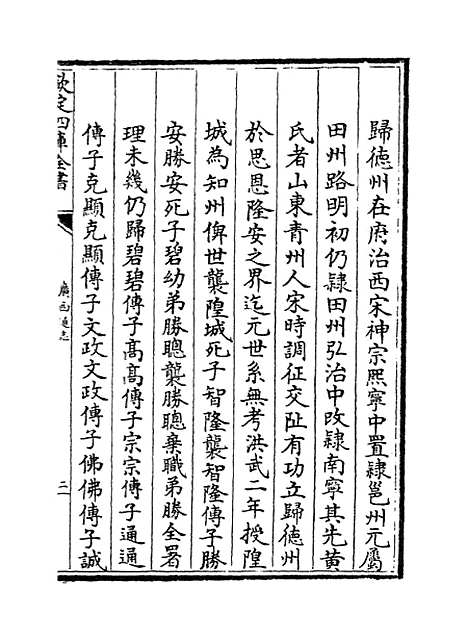 歸德州在府治西宋神宗熙寧中置隷邕州元屬
田州路明初仍隷田州弘治中改隷南寧其先黄
氏者山東青州人宋時調征交阯有功立歸德州
於思恩隆安之界迄元世系無考洪武二年授隍
城為知州俾世襲隍城死子智隆襲智隆傳子勝
安勝安死子碧幼弟勝聰襲勝聰棄職弟勝全署
理未幾仍歸碧碧傳子髙髙傳子宗宗傳子通通
傳子克顯克顯傳子文政文政傳子佛佛傳子誠
欽定四庫全書
廣西通志